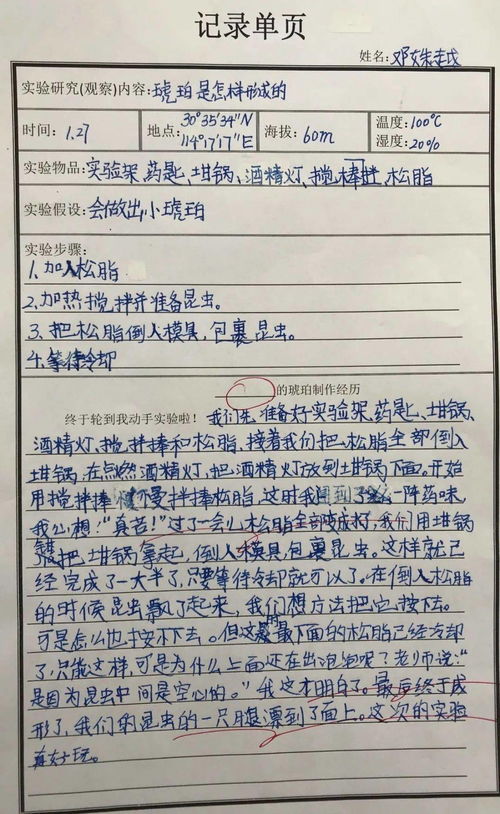 记录单页
姓名:邓姝
实验研究(观察)内容:琥珀是怎样形成的
时间: 1.27 地点: 30°35′34″N 114°17′17″E 海拔: 60m 温度: 100℃ 湿度: 20%
实验物品:实验架、药匙、坩锅、酒精灯、搅拌棒、松脂
实验假设:会做出小琥珀
实验步骤:
1、加入松脂
2、加热搅拌并准备昆虫。
3、把松脂倒入模具,包裹昆虫。
4、等待冷却
的琥珀制作经历
终于轮到我动手实验啦!我们先准备好实验架、药匙、坩锅、
酒精灯、搅拌捧和松脂、接着我们把松脂全部倒入
坩锅,在点燃酒精灯,把酒精灯放到坩锅下面。开始
用搅拌捧慢慢拌捧松脂,这时我闻到了一阵药味,
我心想:“真苦!”过了一会儿松脂全部变成了,我们用坩锅
把坩锅拿起,倒入模具,包裹昆虫。这样就已
经完成了一大半了,只要等待冷却就可以了。在倒入松脂
的时候昆虫飘了起来,我们想方法把它按下去。
可是怎么也按不下去。但这是最下面的松脂已经冷却
了,只能这样,可是为什么上面还在出泡泡呢?老师说:“
是因为昆虫中间是空心的。”我这才明白了。最后终于成
形了,我们的昆虫的一只腿漂到了面上。这次的实验
真好玩。